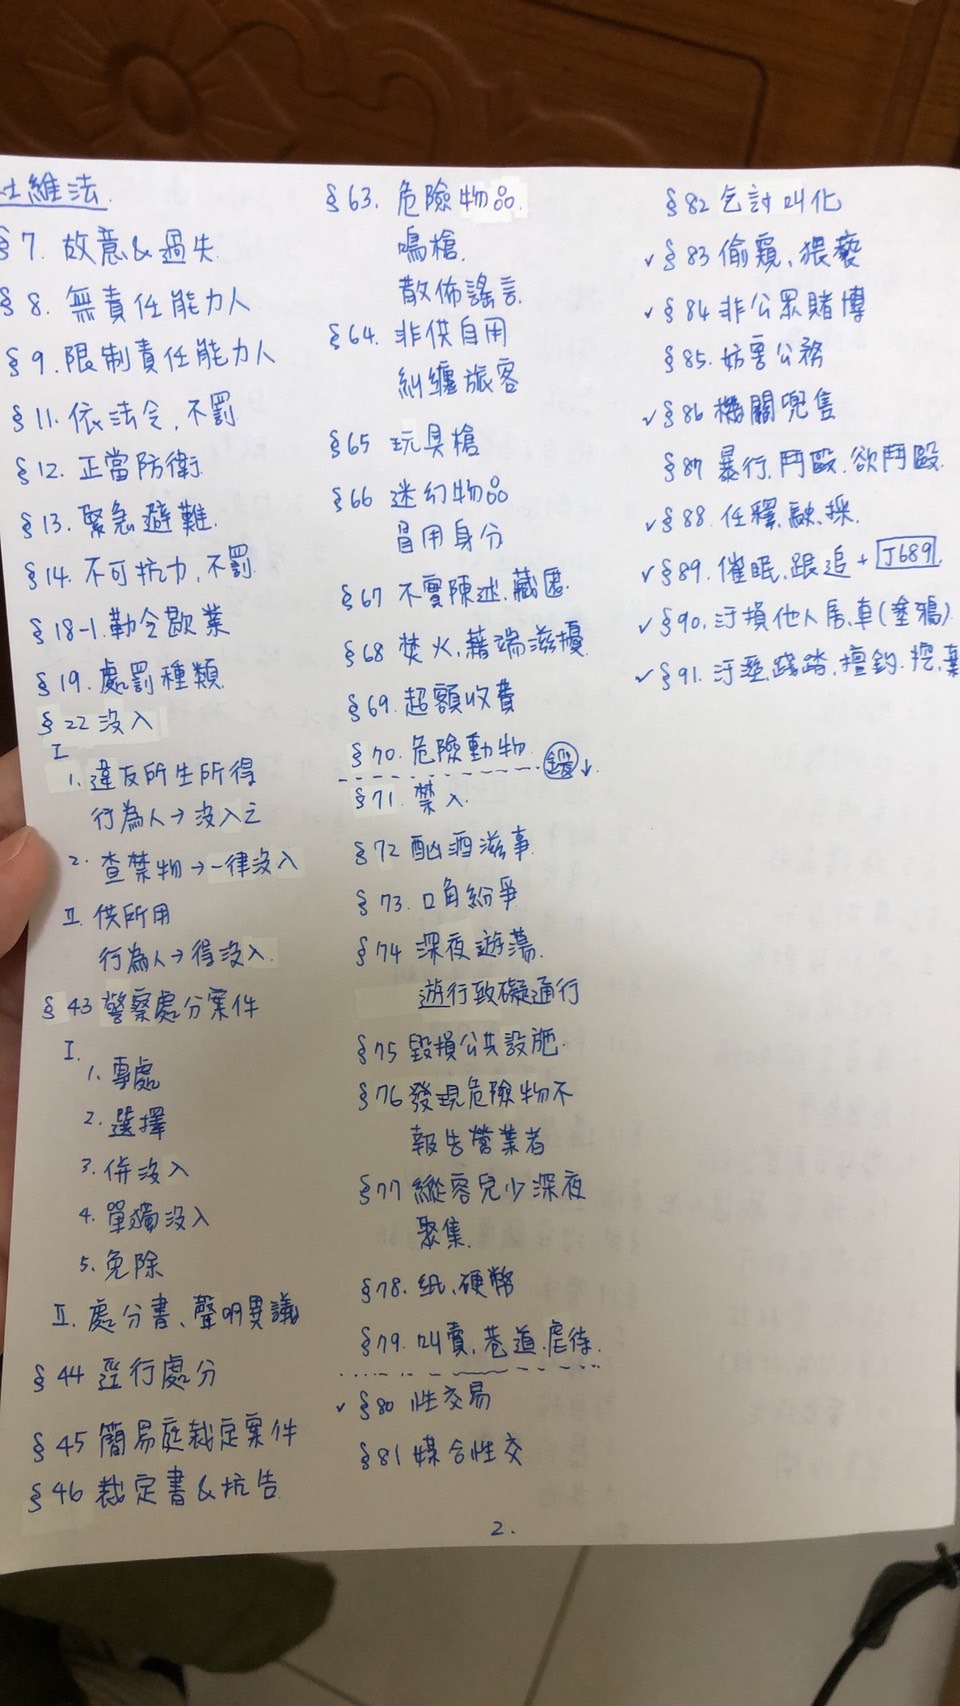 社維法.
§7. 故意&過失
§8. 無責任能力人
§9. 限制責任能力人
§11. 依法令,不罰
§12. 正當防衛
§13. 緊急避難.
§14. 不可抗力,不罰
§18-1.勒令歇業
§19. 處罰種類
§22 沒入
I
1. 違反所生所得
行為人→沒入之
2. 查禁物→一律沒入
II 供所用
行為人→得沒入.
§43 警察處分案件
I.
1. 專處
2. 選擇
3. 併沒入
4. 單獨沒入
5. 免除
II. 處分書、聲明異議
§44 逕行處分
§45 簡易庭裁定案件
§46 裁定書&抗告
§63. 危險物品.
鳴槍.
散佈謠言.
§64. 非供自用
糾纏旅客
§65 玩具槍
§66 迷幻物品
冒用身分
§67 不實陳述.藏匿.
§68 焚火,藉端滋擾
§69. 超額收費
§70. 危險動物.
§71. 禁入.
§72 酗酒滋事.
§73. 口角紛爭
§74 深夜遊蕩.
遊行致礙通行
§75 毀損公共設施.
§76 發現危險物不
報告營業者
§77 縱容兒少深夜
聚集.
§78. 紙、硬幣
§79. 叫賣,巷道.虐待.
✓ §80 性交易
§81 媒合性交
§82 乞討叫化
✓ §83 偷窺、猥褻
✓ §84 非公眾賭博
§85. 妨害公務
✓ §86 機關兜售
§87 暴行,鬥毆.欲鬥毆.
✓ §88. 任釋,融,採.
✓ §89. 催眠,跟追 + J689
✓ §90. 汙損他人居,車(塗鴉)
✓ §91. 汙溼,踐踏,擅釣.挖,
2.